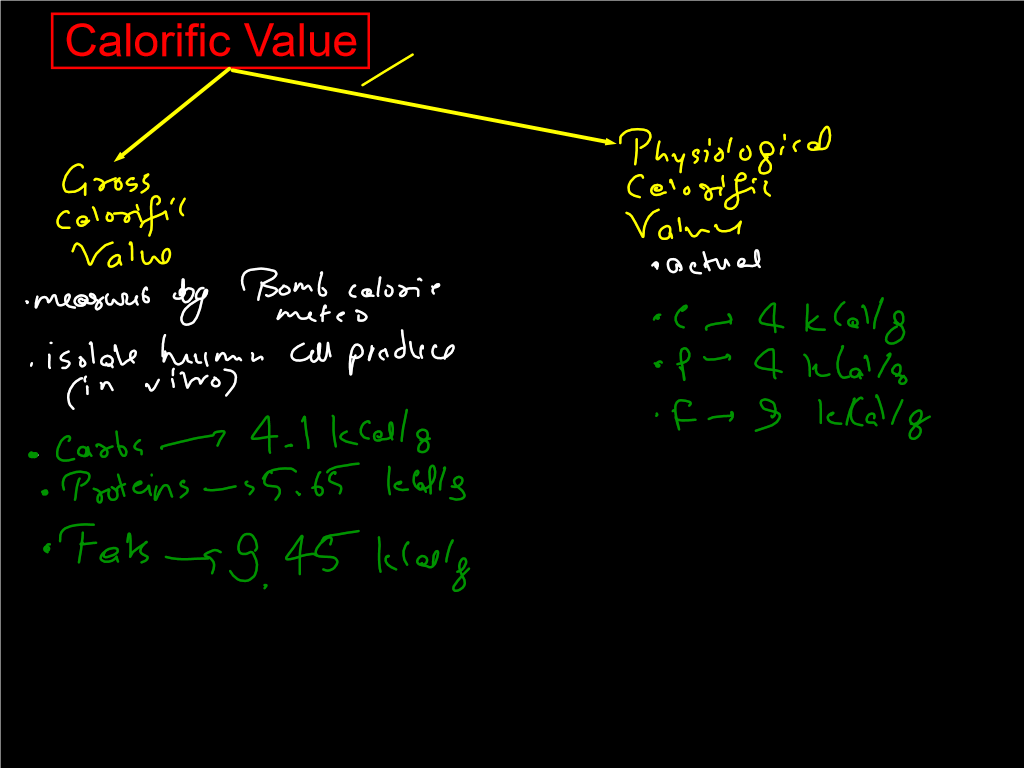 Calorific Value
Gross
Calorific
Value
• measure by Bomb calorie
meter
• isolate human cell produce
(in vitro)
• Carbs → 4.1 kcal/g
• Proteins → 5.65 kcal/g
• Fats → 9.45 kcal/g
Physiological
Calorific
Value
• actual
• C → 4 kCal/g
• P → 4 kCal/g
• F → 9 kKal/g